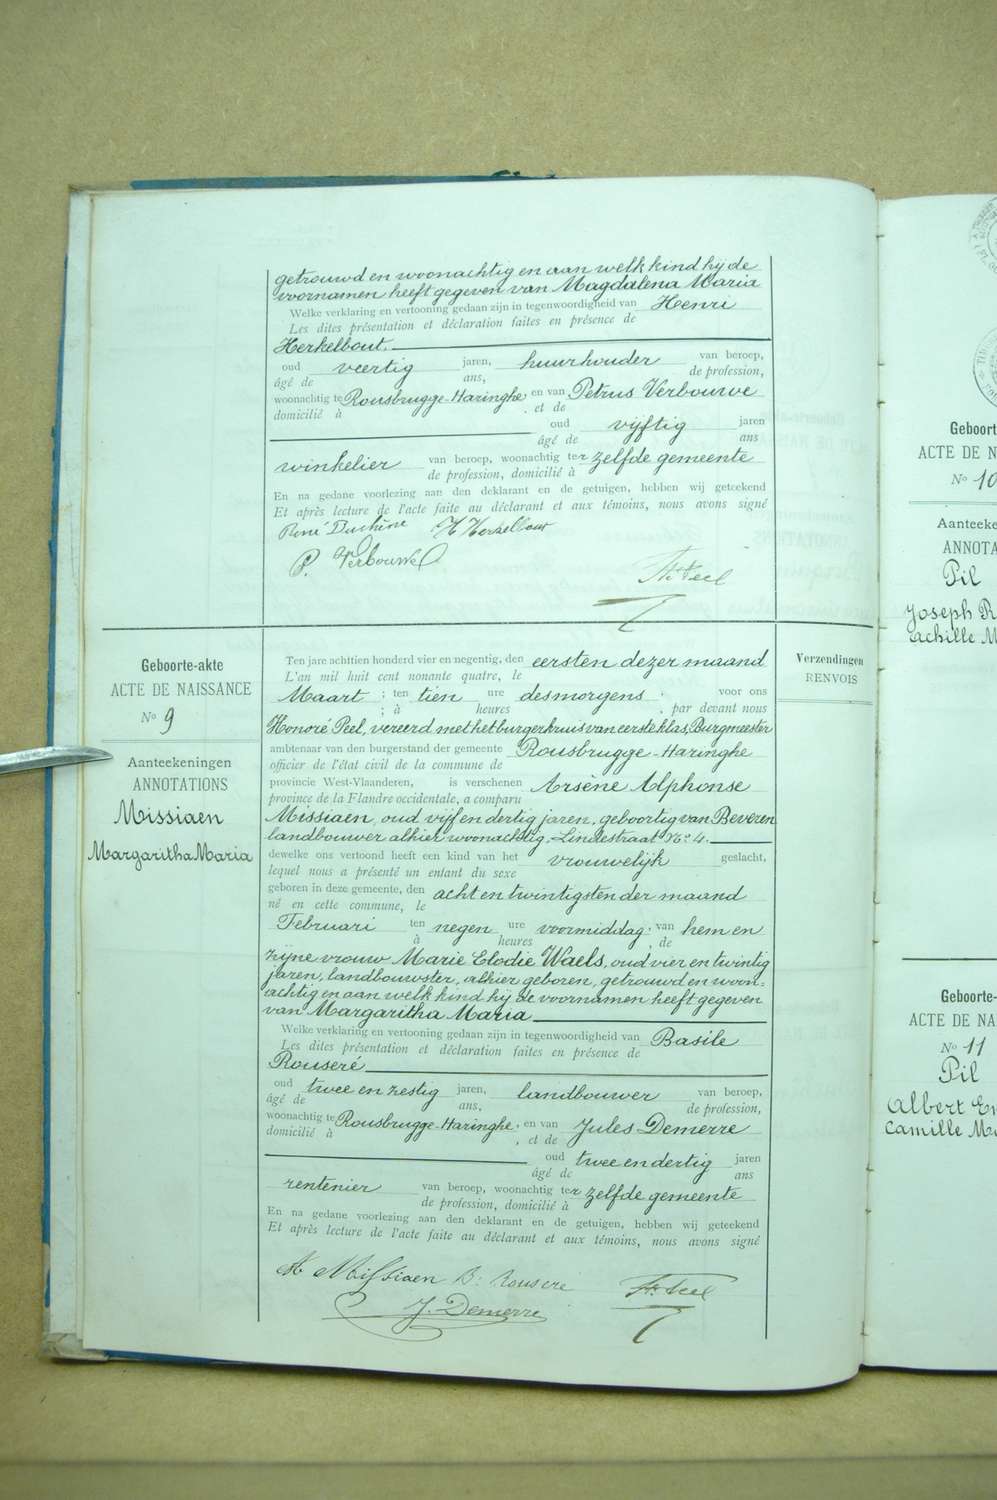 getrouwd en woonachtig en aan welk kind hij de
voornamen heeft gegeven van Magdalena Maria
Welke verklaring en vertooning gedaan zijn in tegenwoordigheid van Henri
Les dites présentation et déclaration faites en présence de
Herkelbout.
oud veertig jaren, huurhouder van beroep,
âgé de ans, de profession,
woonachtig te Rousbrugge-Haringhe en van Petrus Verbouwe
domicilié à et de
oud vijftig jaren
âgé de ans
winkelier van beroep, woonachtig ter zelfde gemeente
de profession, domicilié à
En na gedane voorlezing aan den deklarant en de getuigen, hebben wij geteekend
Et après lecture de l'acte faite au déclarant et aux témoins, nous avons signé
René H Herkelbout
P. Verbouwe
Hre Peel
Geboorte-akte
ACTE DE NAISSANCE
No 9
Aanteekeningen
ANNOTATIONS
Missiaen
Margaritha Maria
Ten jare achttien honderd vier en negentig, den eersten dezer maand
L'an mil huit cent nonante quatre, le
Maart ; ten tien ure desmorgens , voor ons
; à heures , par devant nous
Honoré Peel, vereerd met het burgerkruis van eerste klas, Burgmeester
ambtenaar van den burgerstand der gemeente Rousbrugge-Haringhe
officier de l'état civil de la commune de
provincie West-Vlaanderen, is verschenen Arsène Alphonse
province de la Flandre occidentale, a comparu
Missiaen, oud vijf en dertig jaren, geboortig van Beveren
landbouwer alhier woonachtig, Lindestraat No 4.
dewelke ons vertoond heeft een kind van het vrouwelijk geslacht,
lequel nous a présenté un enfant du sexe
geboren in deze gemeente, den acht en twintigsten der maand
né en cette commune, le
Februari ten negen ure voormiddag, van hem en
à heures , de
zijne vrouw Marie Elodie Waels, oud vier en twintig
jaren, landbouwster, alhier geboren, getrouwd en woon-
achtig en aan welk kind hij de voornamen heeft gegeven
van Margaritha Maria
Welke verklaring en vertooning gedaan zijn in tegenwoordigheid van Basile
Les dites présentation et déclaration faites en présence de
Rouseré
oud twee en zestig jaren, landbouwer van beroep,
âgé de ans, de profession,
woonachtig te Rousbrugge-Haringhe, en van Jules Demerre
domicilié à , et de
oud twee en dertig jaren
âgé de ans
rentenier van beroep, woonachtig ter zelfde gemeente
de profession, domicilié à
En na gedane voorlezing aan den deklarant en de getuigen, hebben wij geteekend
Et après lecture de l'acte faite au déclarant et aux témoins, nous avons signé
A Missiaen B. Rouseré Hre Peel
J. Demerre
Verzendingen
RENVOIS
Geboort
ACTE DE N
No 10
Aanteeke
ANNOTA
Pil
Joseph R
Achille M
Geboorte-
ACTE DE NA
No 11
Pil
Albert Em
Camille Ma